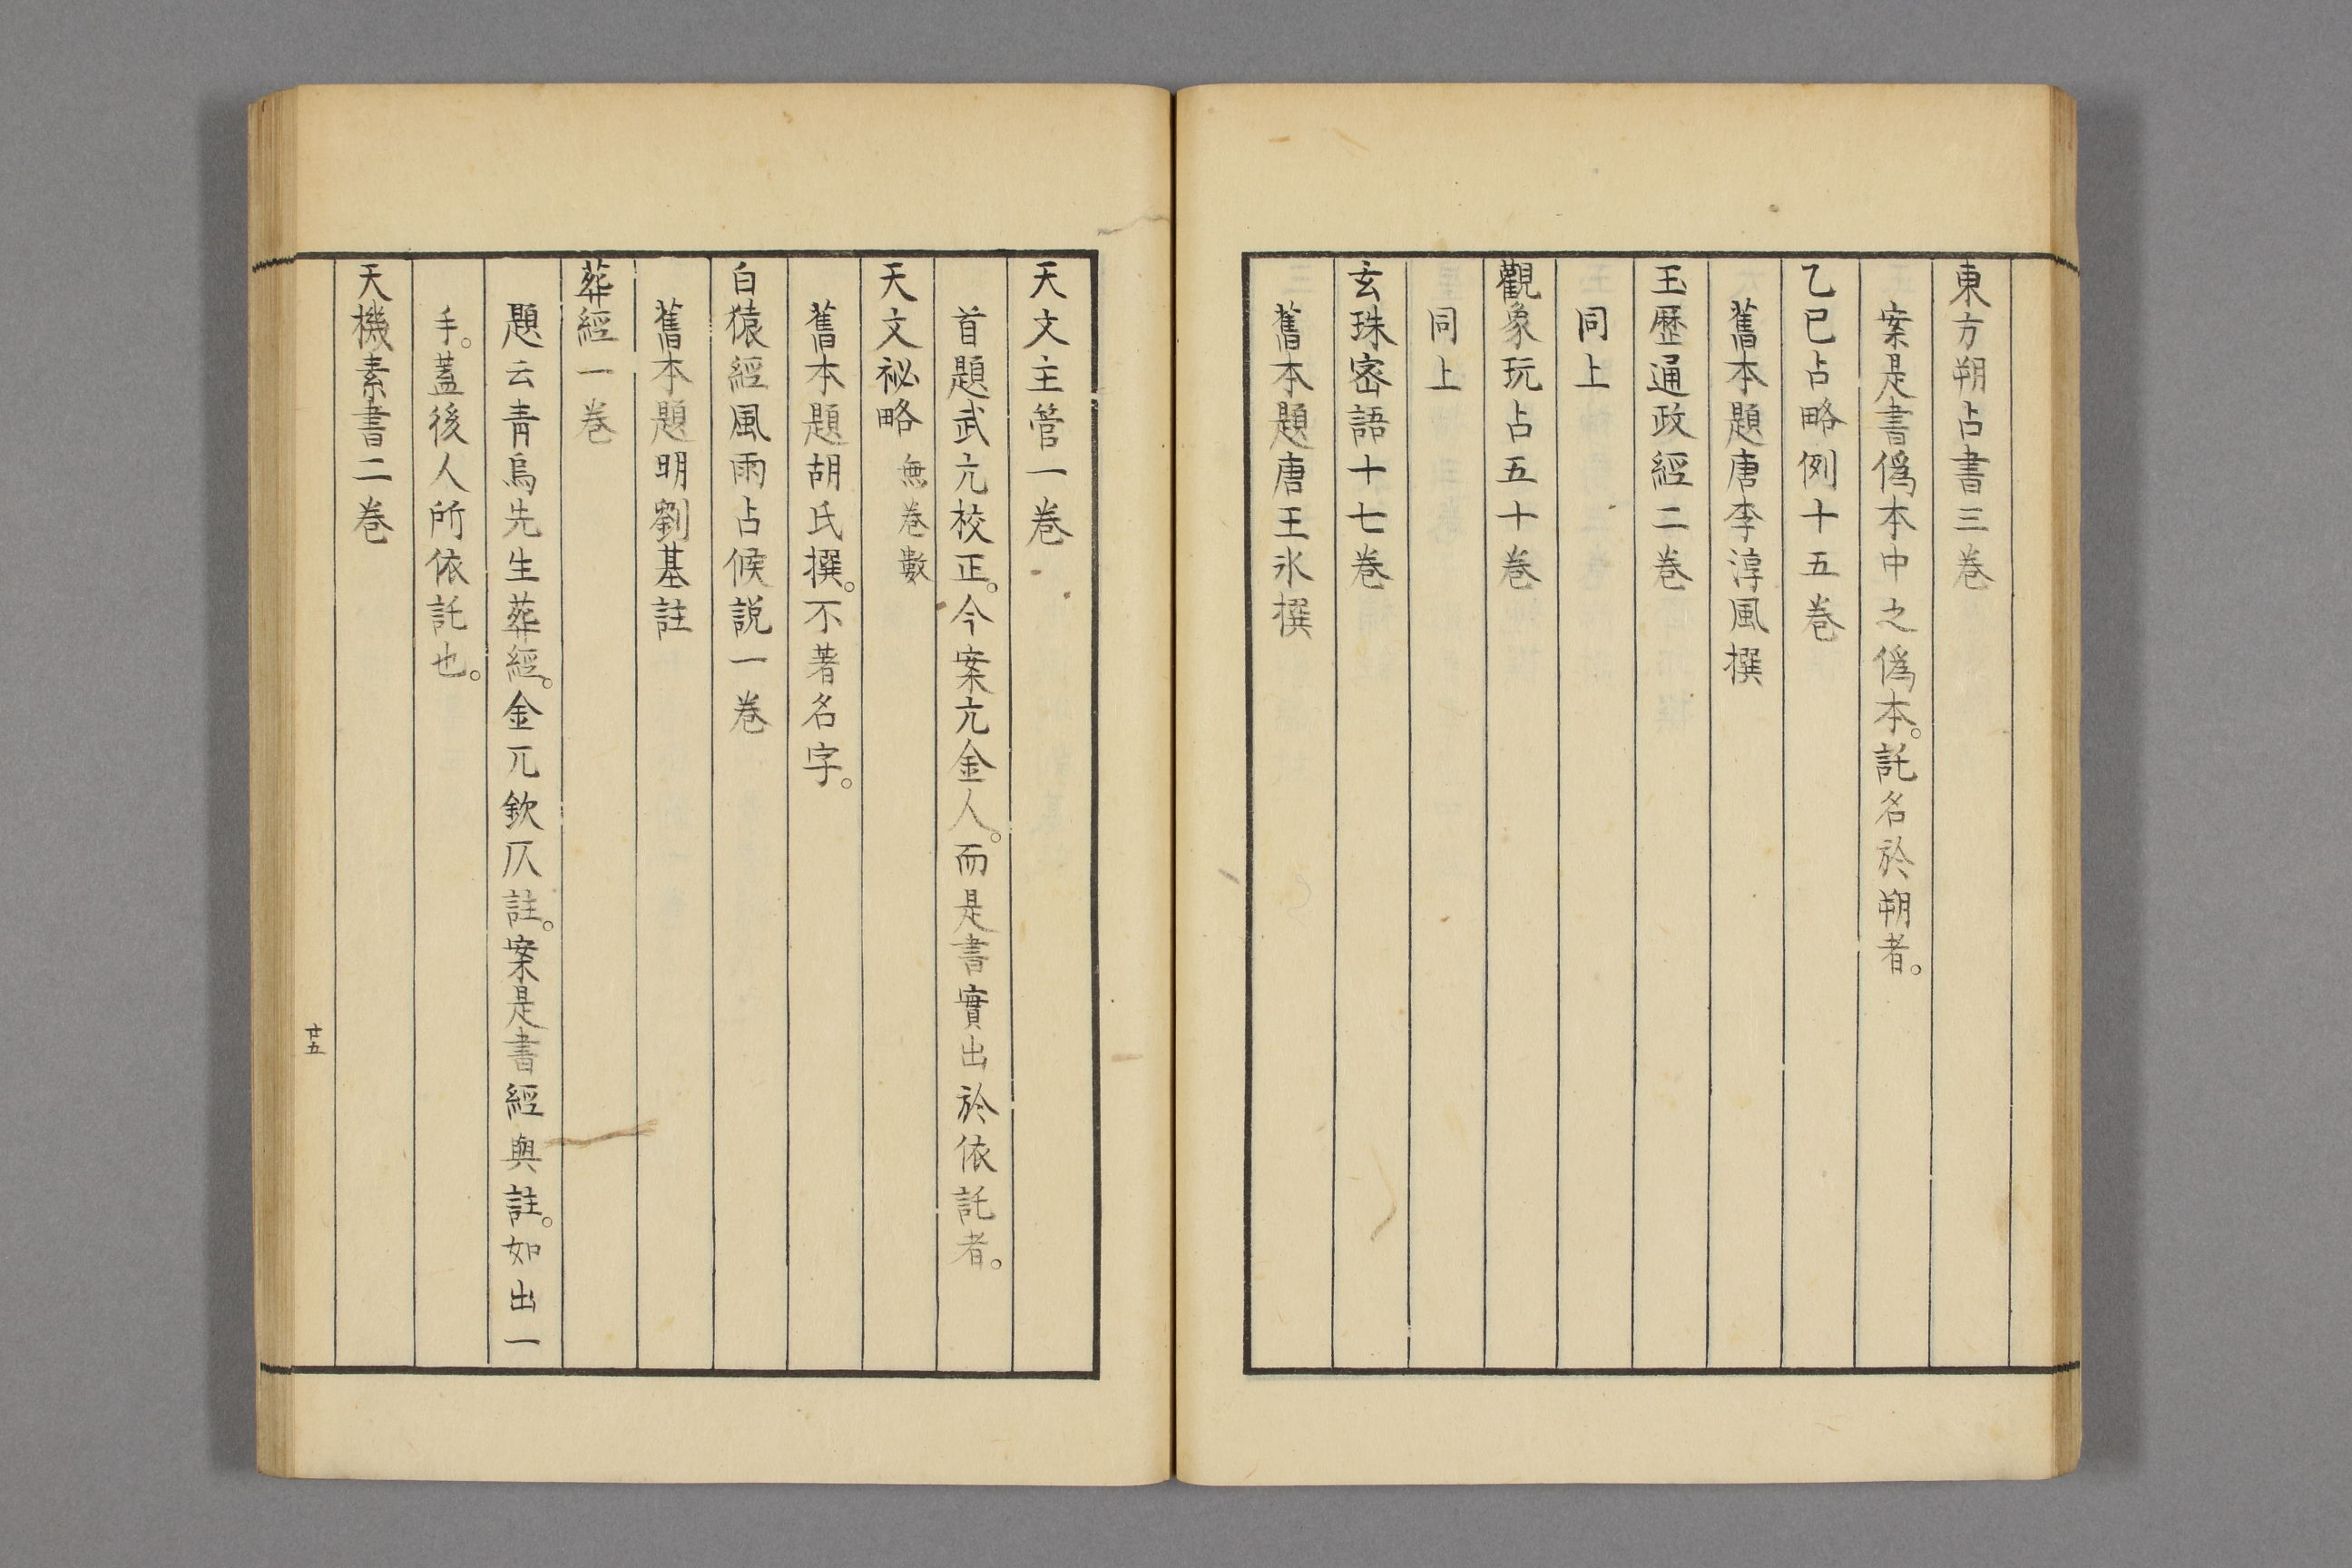 東方朔占書三巻
案是書僞本中之僞本。託名於朔者。
乙巳占略例十五巻
舊本題唐李淳風撰
玉歷通政經二巻
同上
觀象玩占五十巻
同上
玄珠密語十七巻
舊本題唐王氷撰
天文主管一巻
首題武亢校正。今案亢金人。而是書實出於依託者。
天文祕略 無巻數
舊本題胡氏撰。不著名字。
白猿經風雨占候説一巻
舊本題明劉基註
葬經一巻
題云青烏先生葬經。金兀欽仄註。案是書經與註。如出一
手。蓋後人所依託也。
天機素書二巻
廿五